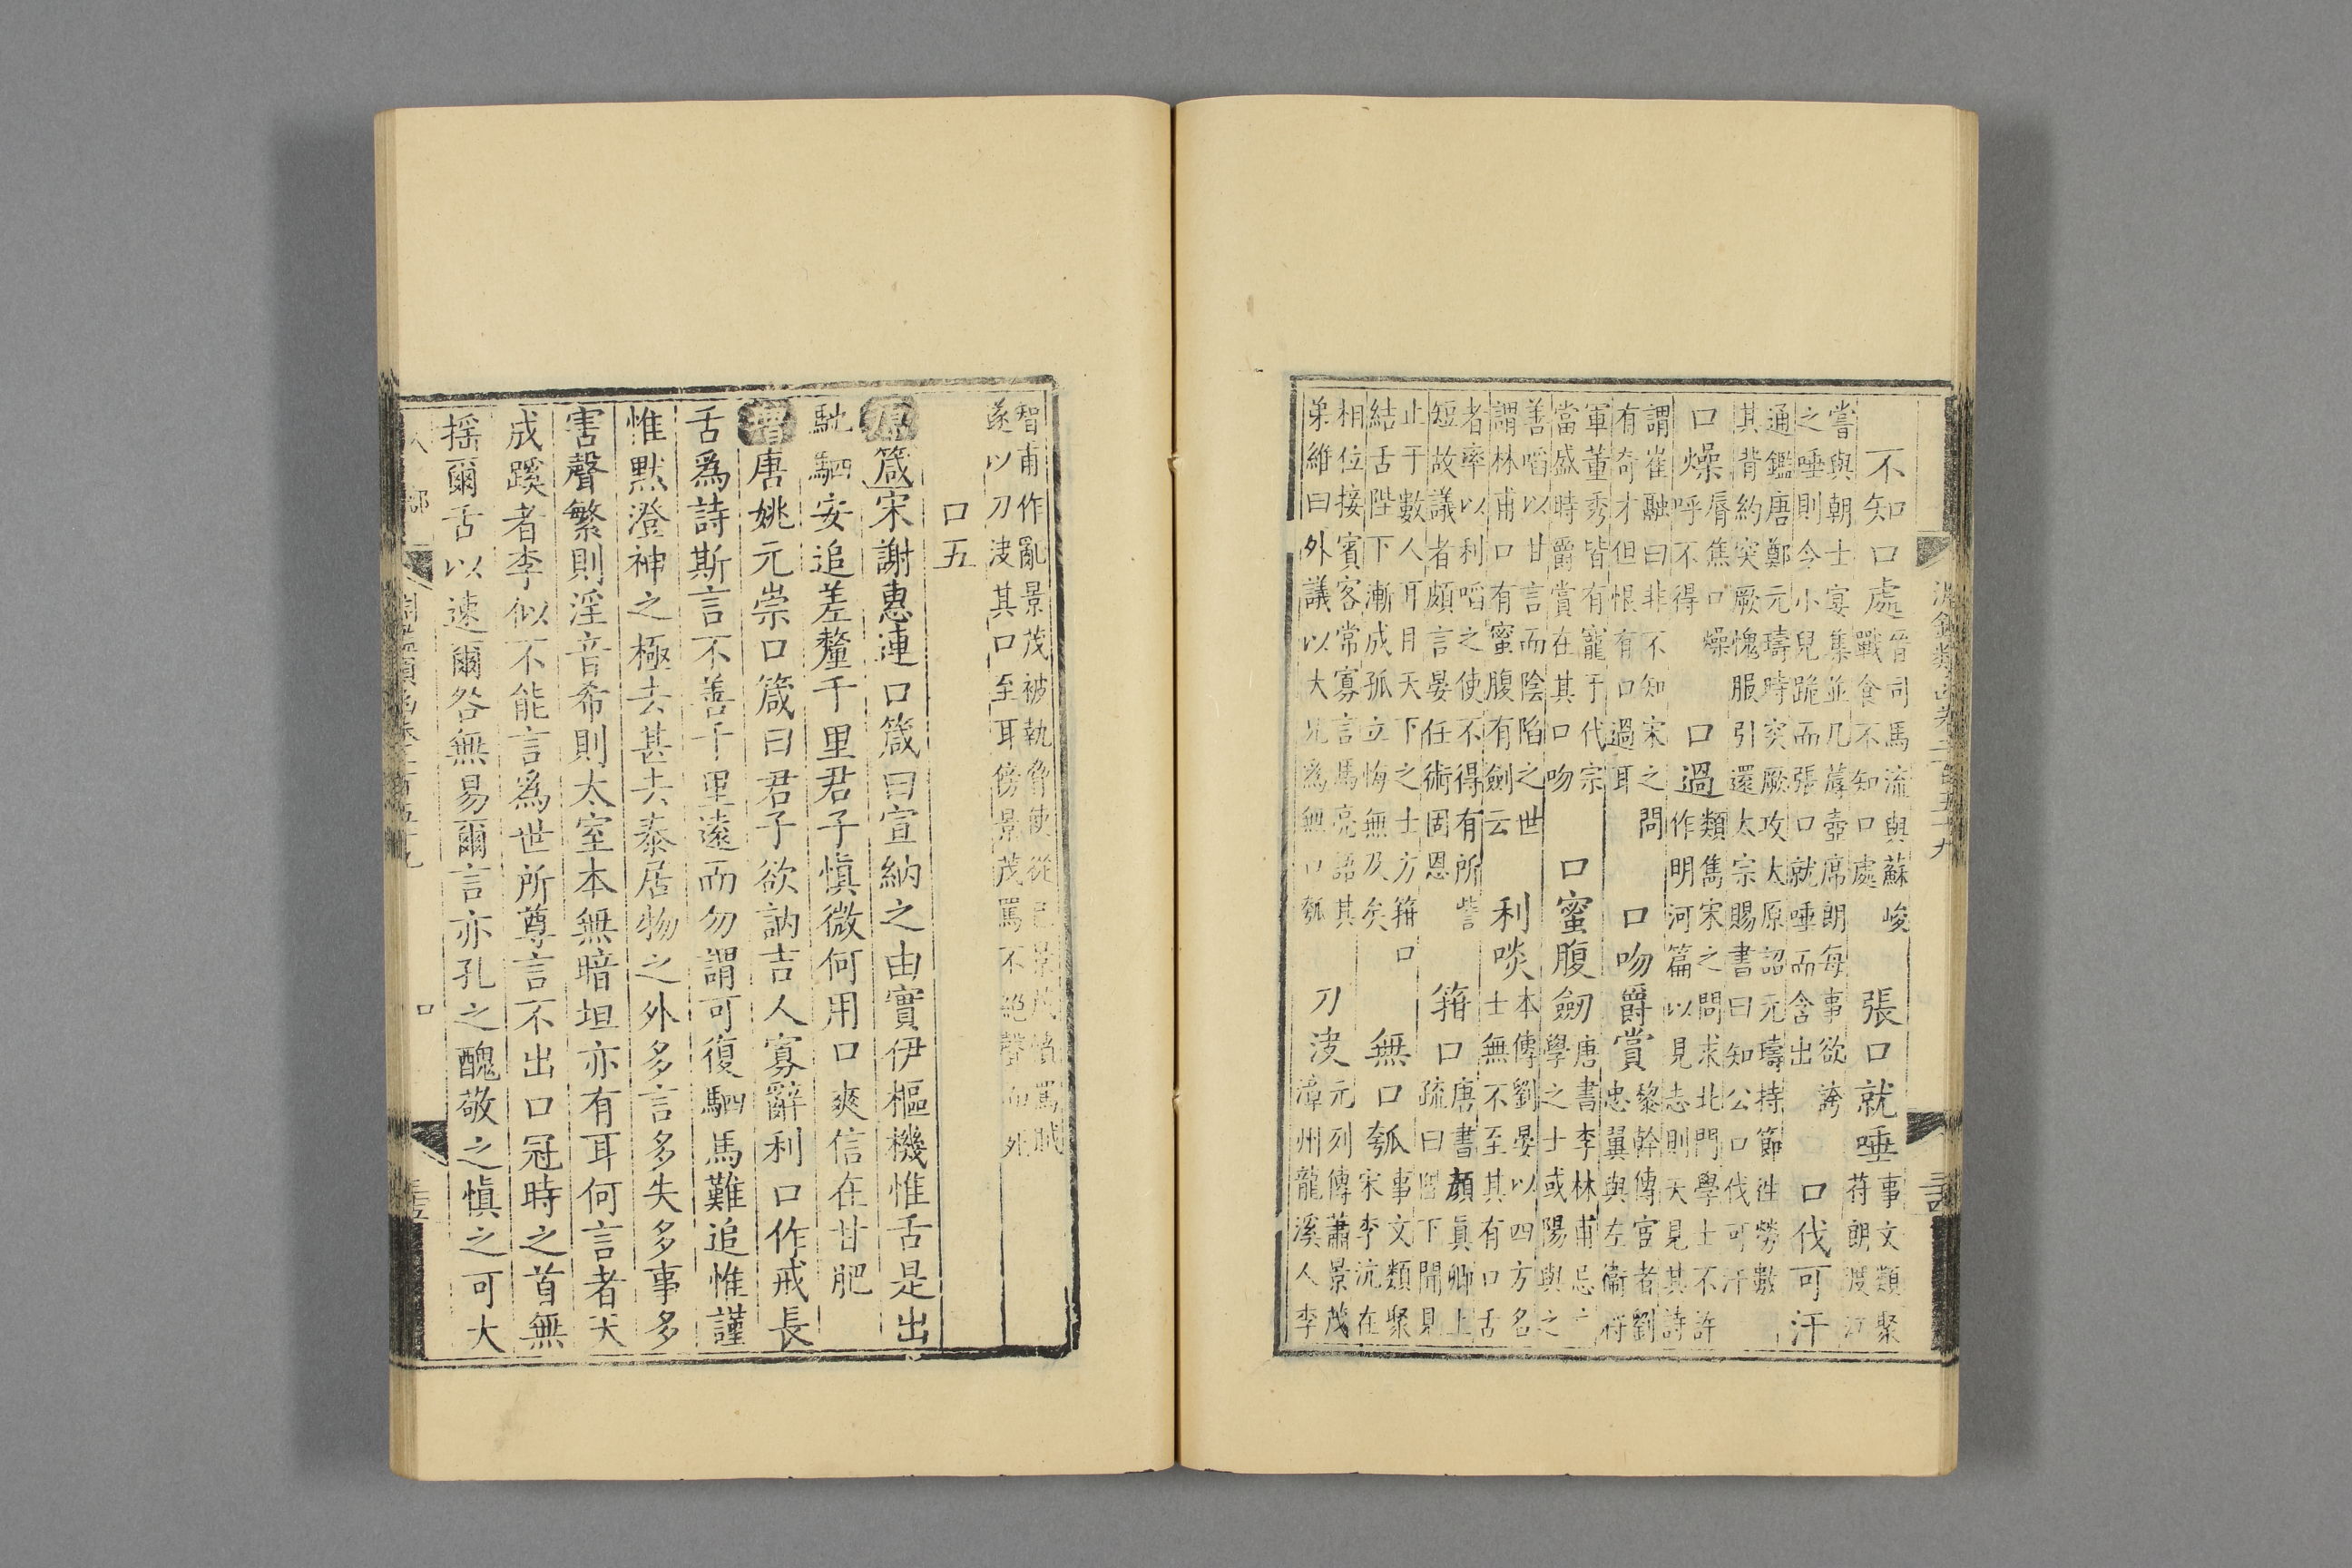 不知口處晉司馬流與蘇峻戰食不知口處 張口就唾事文類聚苻朗渡江
嘗與朝士宴集並几蓐壺席朗每事欲誇之唾則令小兒跪而張口就唾而含出 口伐可汗
通鑑唐鄭元璹時突厥攻太原詔元璹持節往勞數其背約突厥愧服引還太宗賜書曰知公口伐可汗
口燥脣焦口燥呼不得 口過類雋宋之問求北門學士不許作明河篇以見志則天見其詩
謂崔融曰非不知宋之問有奇才但恨有口過耳 口吻爵賞黎幹傳宦者劉忠翼與左衞將
軍董秀皆有寵于代宗當盛時爵賞在其口吻 口蜜腹劒唐書李林甫忌文學之士或陽與之
善啗以甘言而陰陷之世謂林甫口有蜜腹有劍云 利啖本傳劉晏以四方名士無不至其有口舌
者率以利啗之使不得有所訾短故議者頗言晏任術固恩 箝口唐書顏眞卿上疏曰陛下聞見
止于數人耳目天下之士方箝口結舌陛下漸成孤立悔無及矣 無口瓠事文類聚宋李沆在
相位接賓客常寡言馬亮語其弟維曰外議以大兄為無口瓠 刀浚元列傳蕭景茂漳州龍溪人李
智甫作亂景茂被執脅使從己景茂憤罵賊遂以刀浚其口至耳傍景茂罵不絕聲而死
口五
原箴宋謝惠連口箴曰宣納之由實伊樞機惟舌是出
馳駟安追差釐千里君子愼微何用口爽信在甘肥
增唐姚元崇口箴曰君子欲訥吉人寡辭利口作戒長
舌爲詩斯言不善千里遠而勿謂可復駟馬難追惟謹
惟默澄神之極去甚去泰居物之外多言多失多事多
害聲繁則淫音希則太室本無暗垣亦有耳何言者天
成蹊者李似不能言爲世所尊言不出口冠時之首無
掭爾舌以速爾咎無易爾言亦孔之醜敬之愼之可大